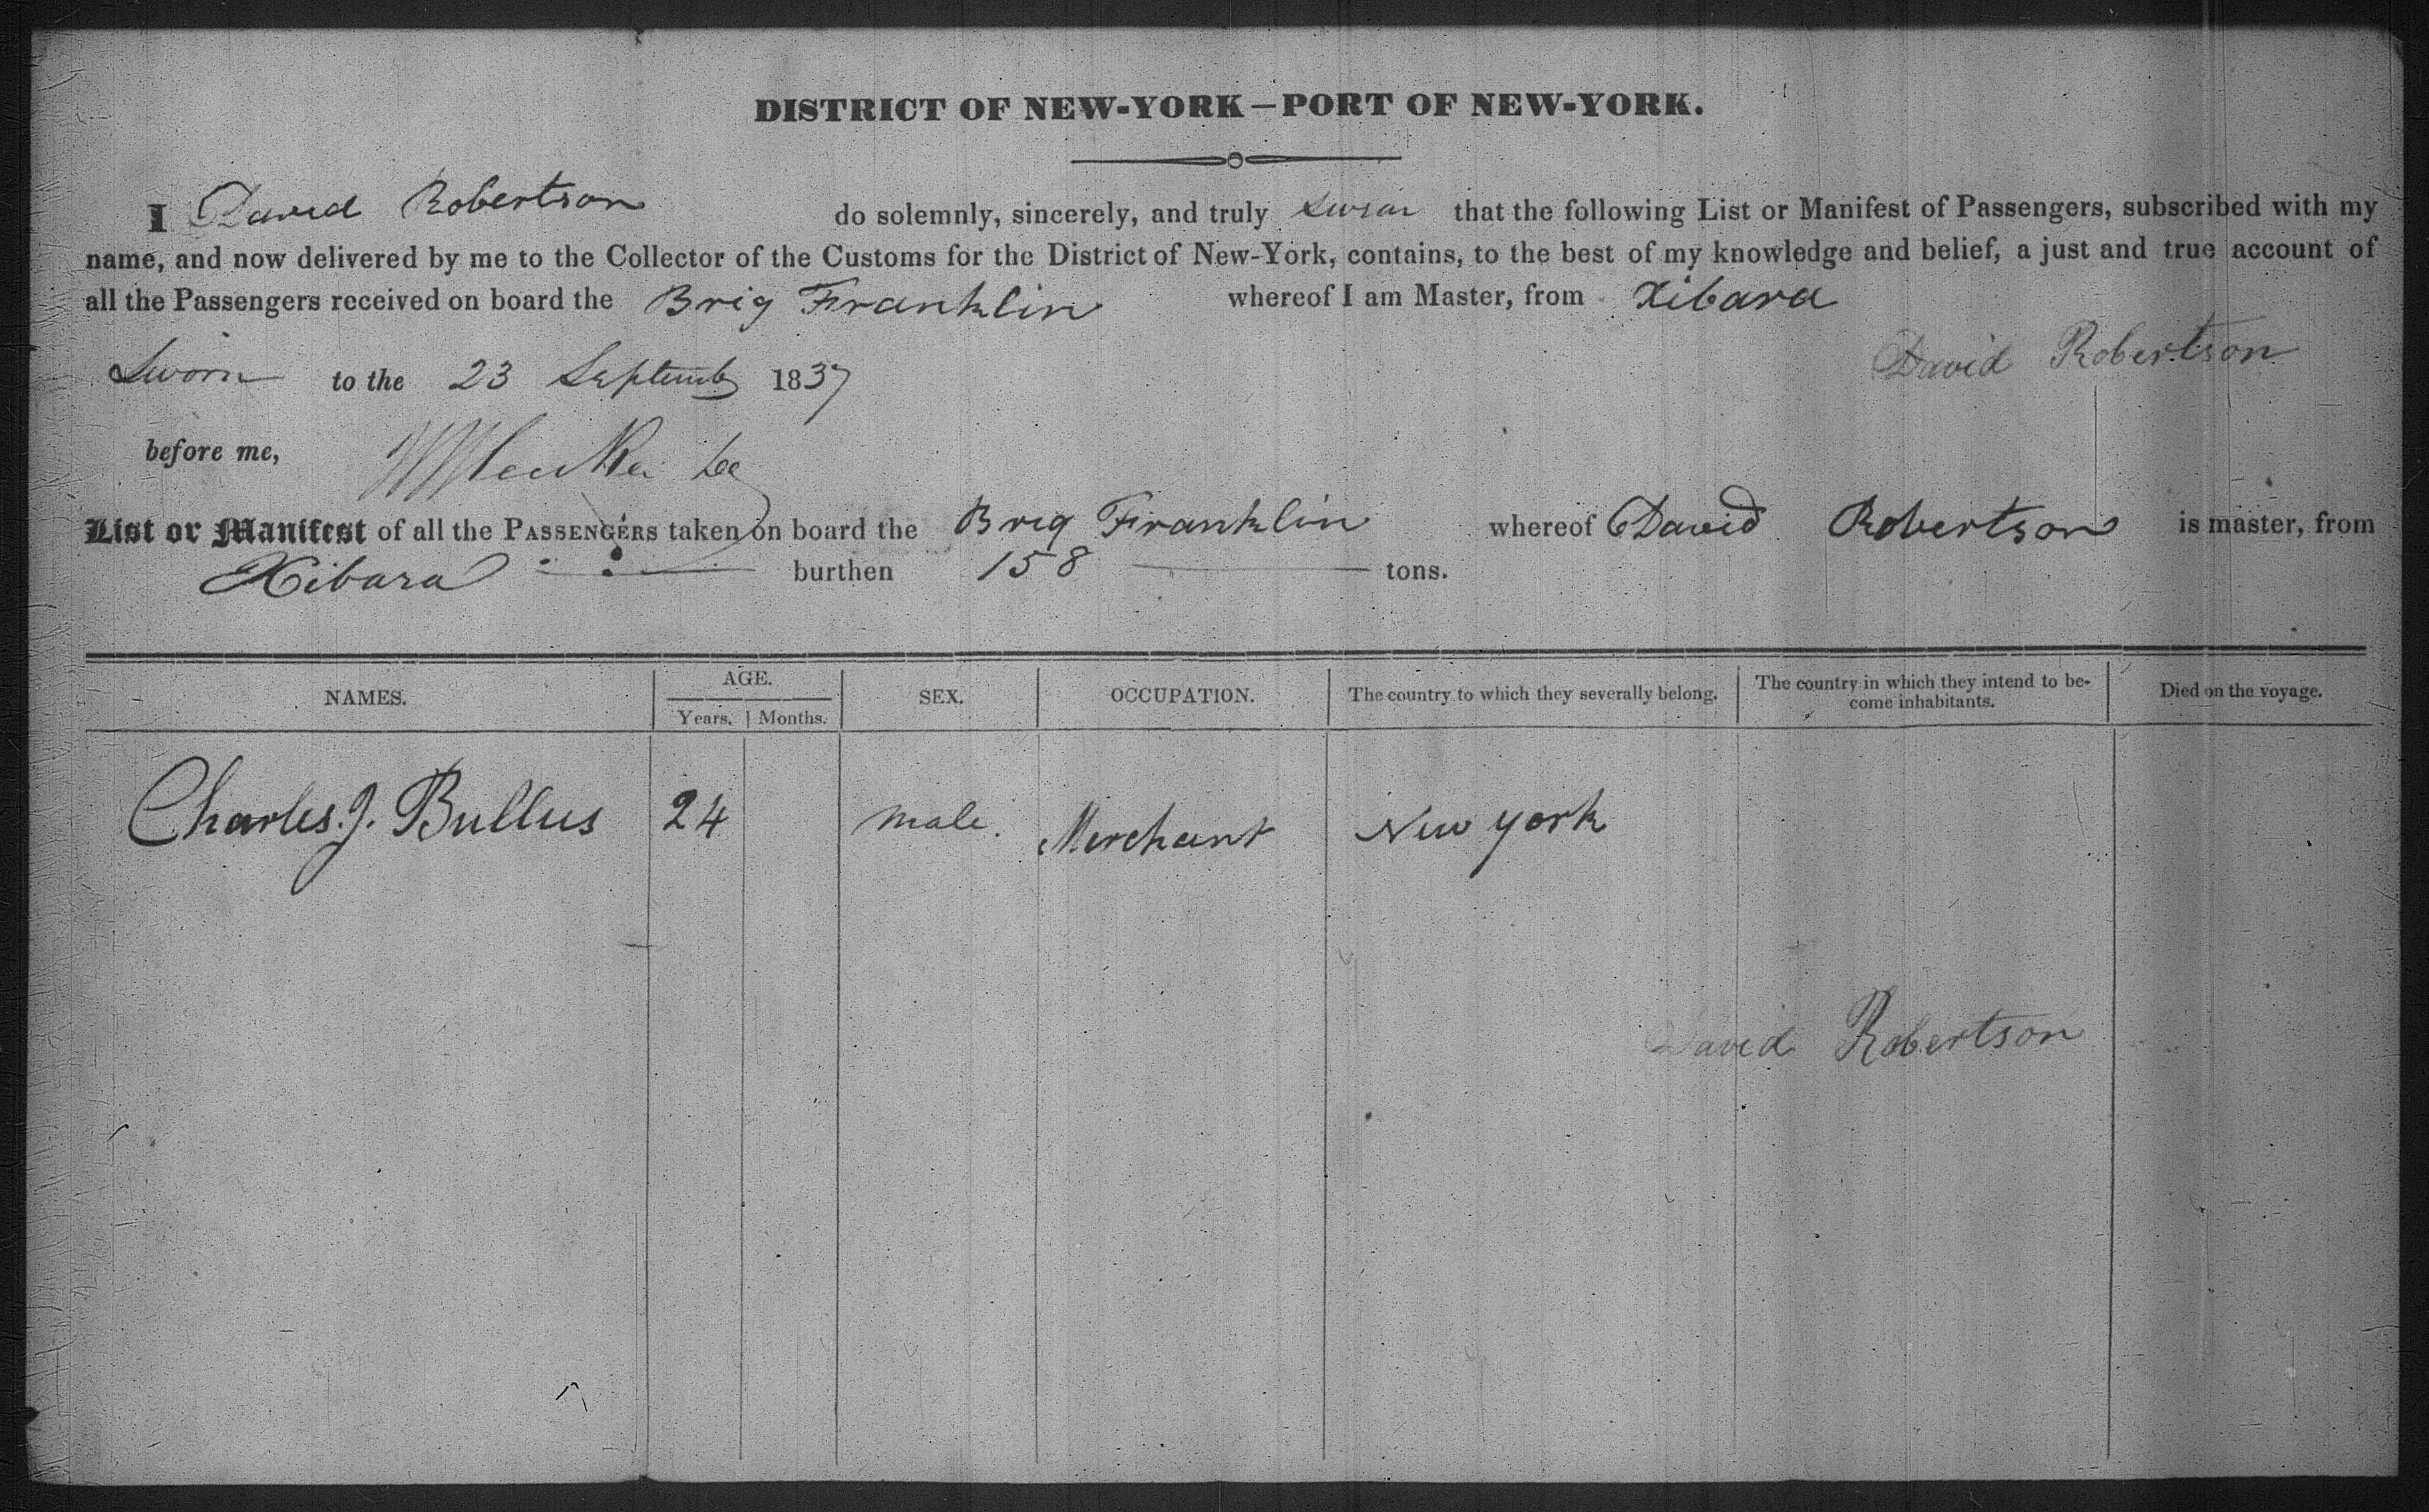 DISTRICT OF NEW-YORK—PORT OF NEW-YORK.
I David Robertson do solemnly, sincerely, and truly swear that the following List or Manifest of Passengers, subscribed with my
name, and now delivered by me to the Collector of the Customs for the District of New-York, contains, to the best of my knowledge and belief, a just and true account of
all the Passengers received on board the Brig Franklin whereof I am Master, from Xibara
David Robertson
Sworn to the 23 Septemb 1837
before me,
List or Manifest of all the PASSENGERS taken on board the Brig Franklin whereof David Robertson is master, from
Xibara burthen 158 tons.
NAMES. AGE. SEX. OCCUPATION. The country to which they severally belong. The country in which they intend to be-
come inhabitants. Died on the voyage.
Years. Months.
Charles. J. Bullus 24 male. Merchant New york
David Robertson